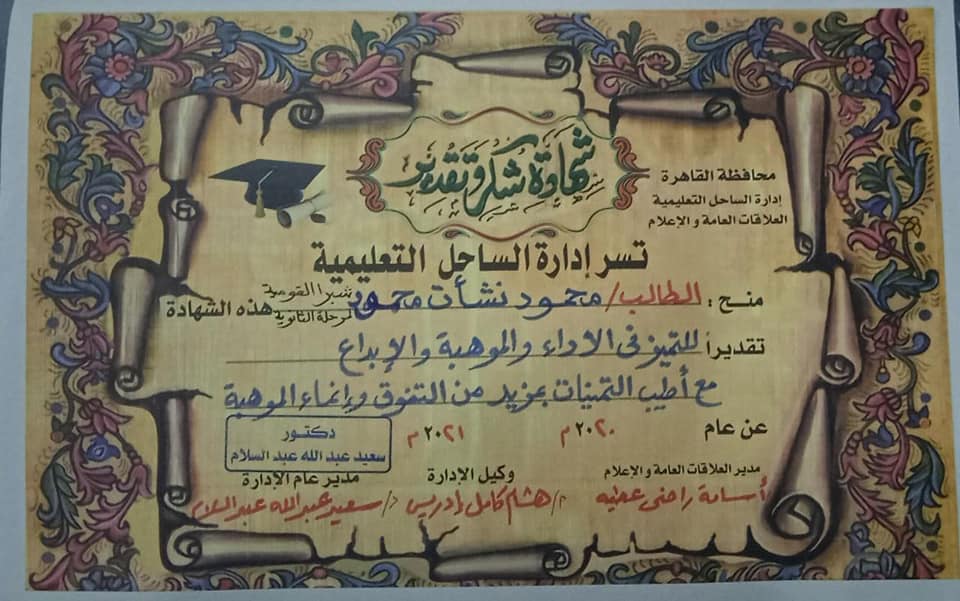 شهادة شكر وتقدير
محافظة القاهرة
إدارة الساحل التعليمية
العلاقات العامة والإعلام
تسر إدارة الساحل التعليمية
منح : الطالب/ محمود نشأت محمود شبرا القومية لمرحلة الثانوية هذه الشهادة
تقديراً للتميز فى الاداء والموهبة والإبداع
مع أطيب التمنيات بمزيد من التفوق وإنماء الموهبة
عن عام ٢٠٢٠م ٢٠٢١م
دكتور
سعيد عبد الله عبد السلام
مدير العلاقات العامة والإعلام وكيل الإدارة مدير عام الإدارة
أسامة راضى عطيه م/ هشام كامل إدريس د/ سعيد عبد الله عبد السلام